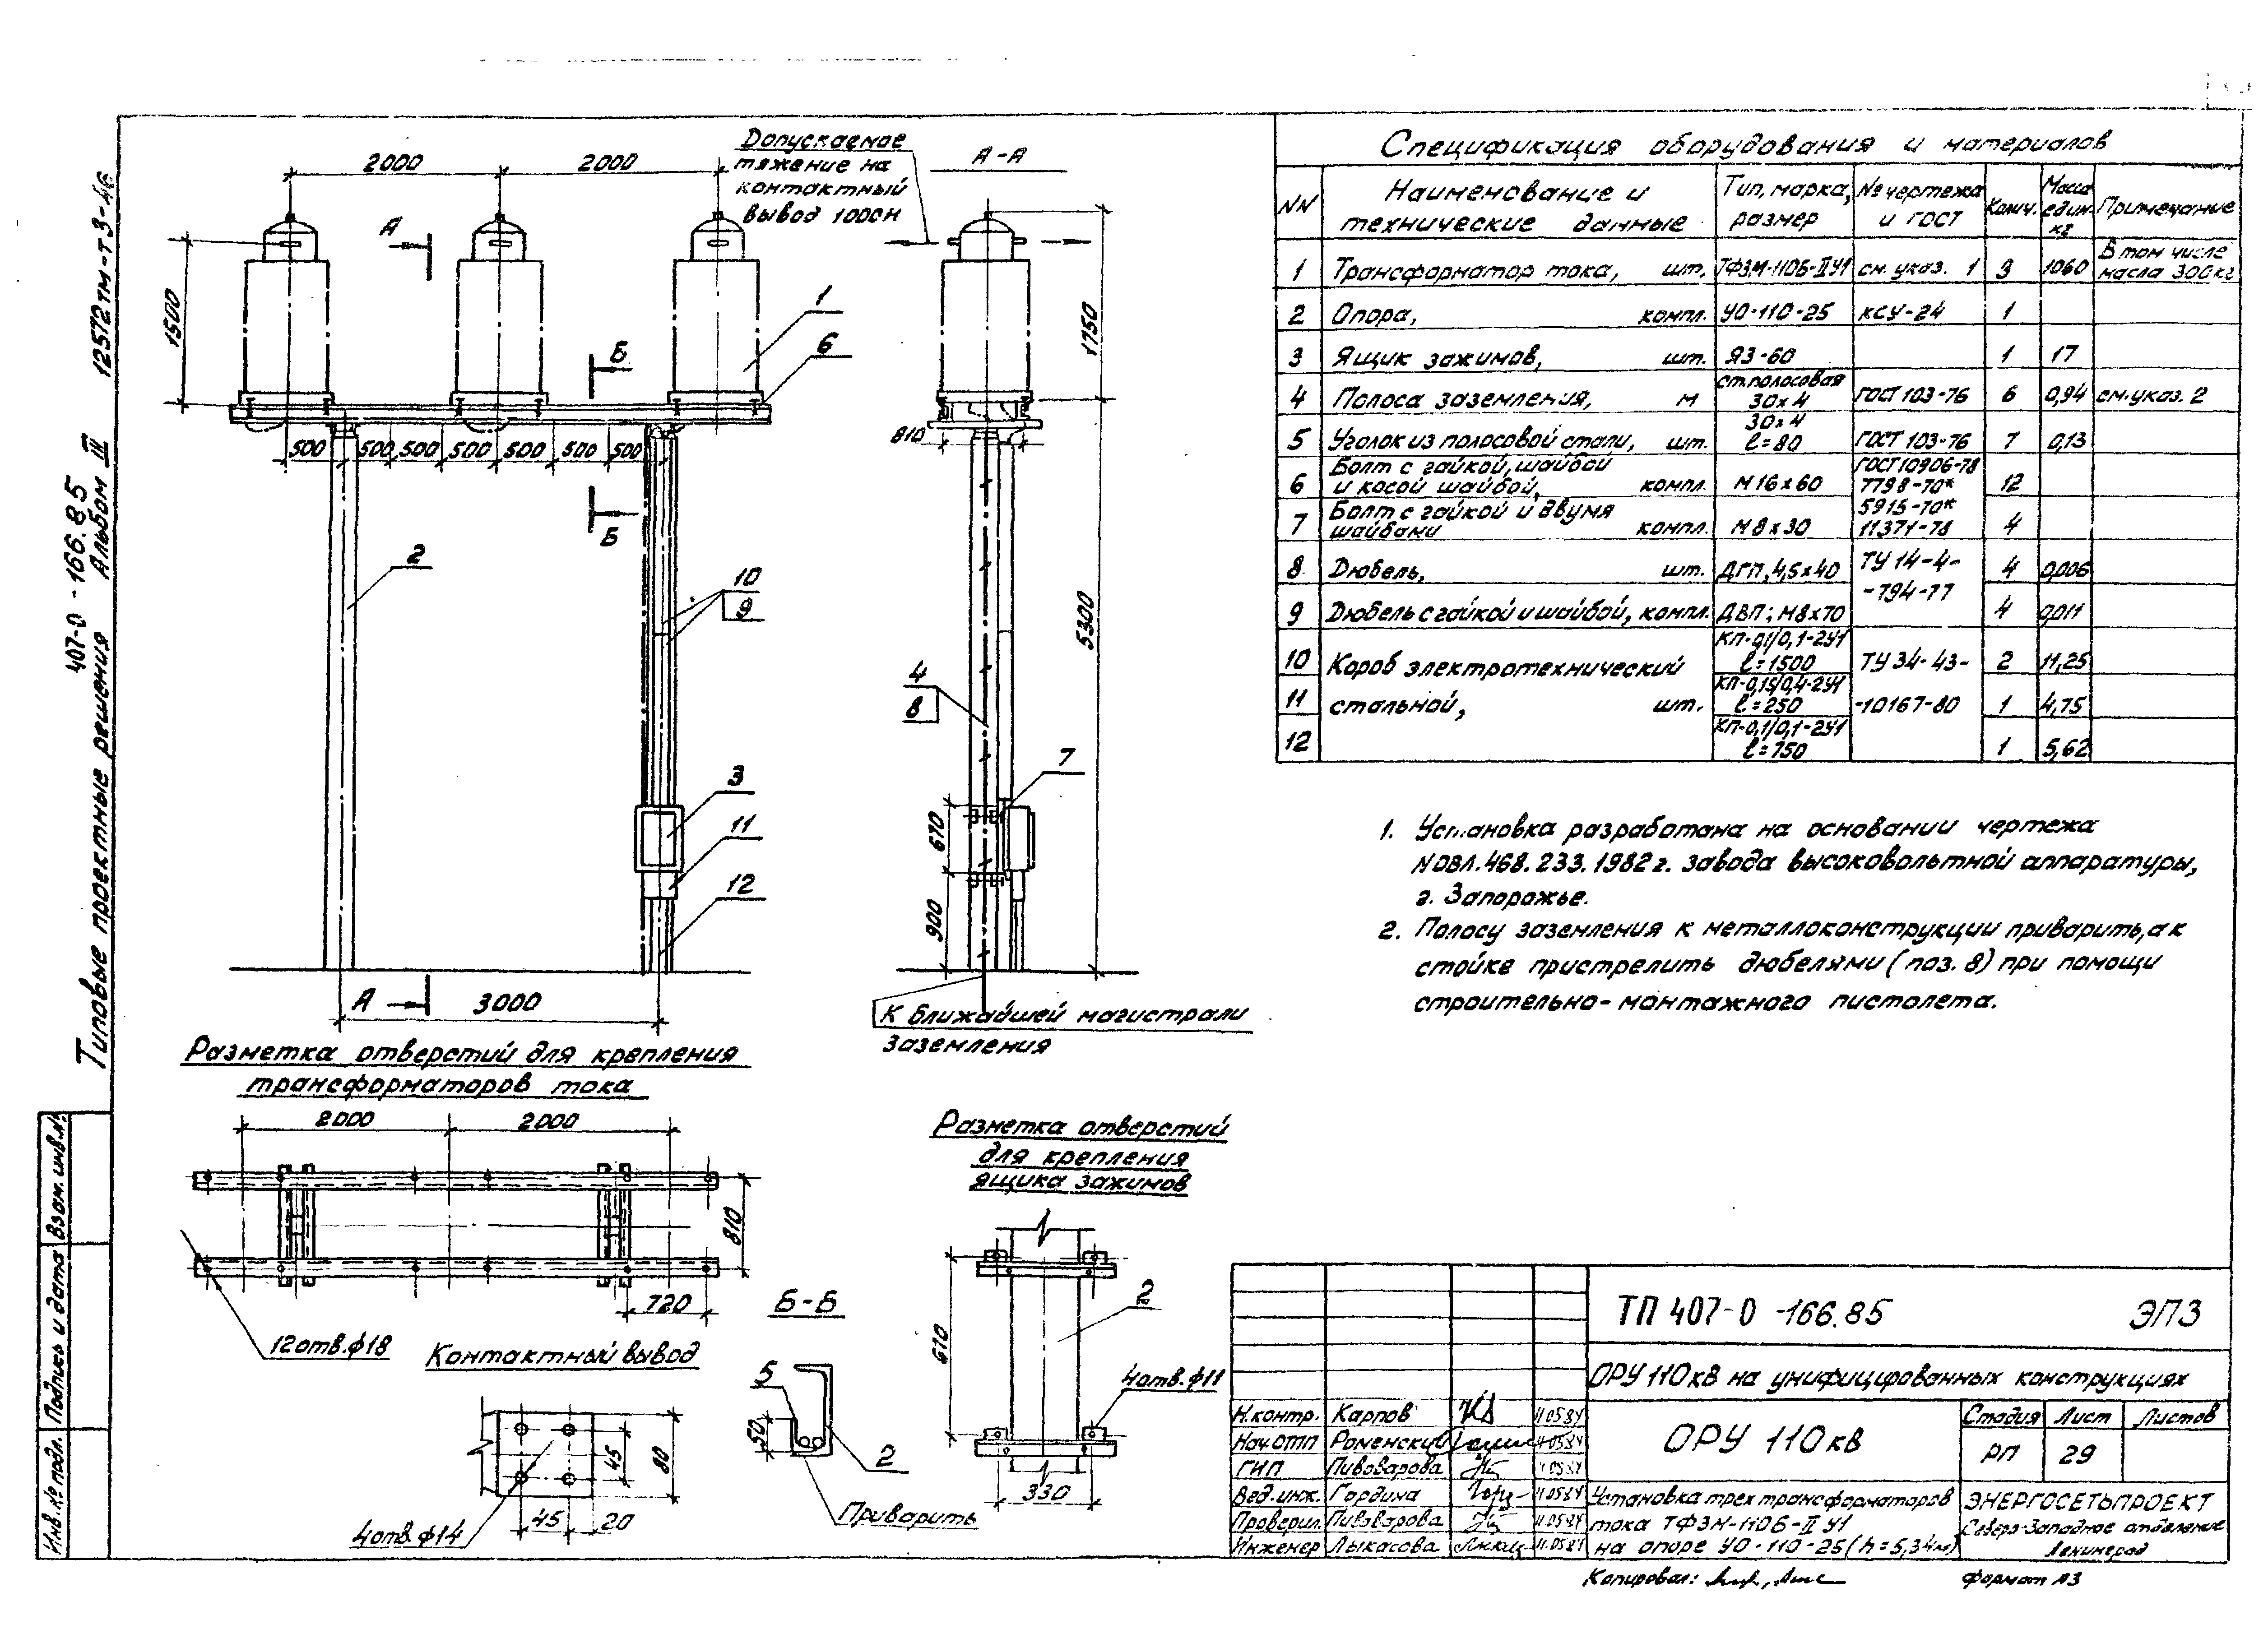 Типовые проектные решения 407-0-166.85 Альбом III 12572тм-т3-46
Инв. № подл. Подпись и дата Взам. инв.№
2000
2000
Допускаемое
тяжение на
контактный
вывод 1000Н
А-А
А
1500
1
6
Б
500 500 500 500 500 500 500
Б
2
10
9
3
11
12
А
3000
1750
810
5300
4
8
7
670
900
К ближайшей магистрали
заземления
Разметка отверстий для крепления
трансформаторов тока
2000
2000
810
720
12отв.ф18
Контактный вывод
45
80
45
20
4отв.ф14
Б-Б
5
50
2
Приварить
Разметка отверстий
для крепления
ящика зажимов
2
670
4отв.ф11
330
Спецификация оборудования и материалов
NN Наименование и технические данные Тип, марка, размер № чертежа и ГОСТ Колич. Масса един. кг Примечание
1 Трансформатор тока, шт. ТФЗМ-110Б-IIУ1 см. указ. 1 3 1060 В том числе масла 300кг
2 Опора, компл. УО-110-25 КСУ-24 1
3 Ящик зажимов, шт. ЯЗ-60 1 17
4 Полоса заземления, м ст.полосовая 30х4 ГОСТ 103-76 6 0,94 см.указ. 2
5 Уголок из полосовой стали, шт. 30х4 ℓ=80 ГОСТ 103-76 7 0,13
6 Болт с гайкой, шайбой и косой шайбой, компл. М16х60 ГОСТ10906-78 7798-70* 12
7 Болт с гайкой и двумя шайбами компл. М8х30 5915-70* 11371-78 4
8 Дюбель, шт. ДГП, 4,5х40 ТУ 14-4- 4 0,006
-794-77
9 Дюбель с гайкой и шайбой, компл. ДВП; М8х70 4 0,011
10 Короб электротехнический КП-0,1/0,1-2У1 ℓ=1500 ТУ 34-43- 2 11,25
11 стальной, шт. КП-0,15/0,4-2У1 ℓ=250 -10167-80 1 4,75
12 КП-0,1/0,1-2У1 ℓ=750 1 5,62
1. Установка разработана на основании чертежа
NОВЛ.468.233.1982г. завода высоковольтной аппаратуры,
г. Запорожье.
2. Полосу заземления к металлоконструкции приварить, а к
стойке пристрелить дюбелями (поз. 8) при помощи
строительно-монтажного пистолета.
ТП 407-0-166.85 ЭП3
ОРУ 110кв на унифицированных конструкциях
Н.контр. Карпов 11.05.84
Нач.ОТП Роменский 11.05.84
ГИП Пивоварова 11.05.84
Вед.инж. Гордина 11.05.84
Проверил Пивоварова 11.05.84
Инженер Лыкасова 11.05.84
ОРУ 110кв
Стадия Лист Листов
РП 29
Установка трех трансформаторов
тока ТФЗМ-110Б-II У1
на опоре УО-110-25 (h=5,34м)
ЭНЕРГОСЕТЬПРОЕКТ
Северо-Западное отделение
Ленинград
Копировал:
Формат А3